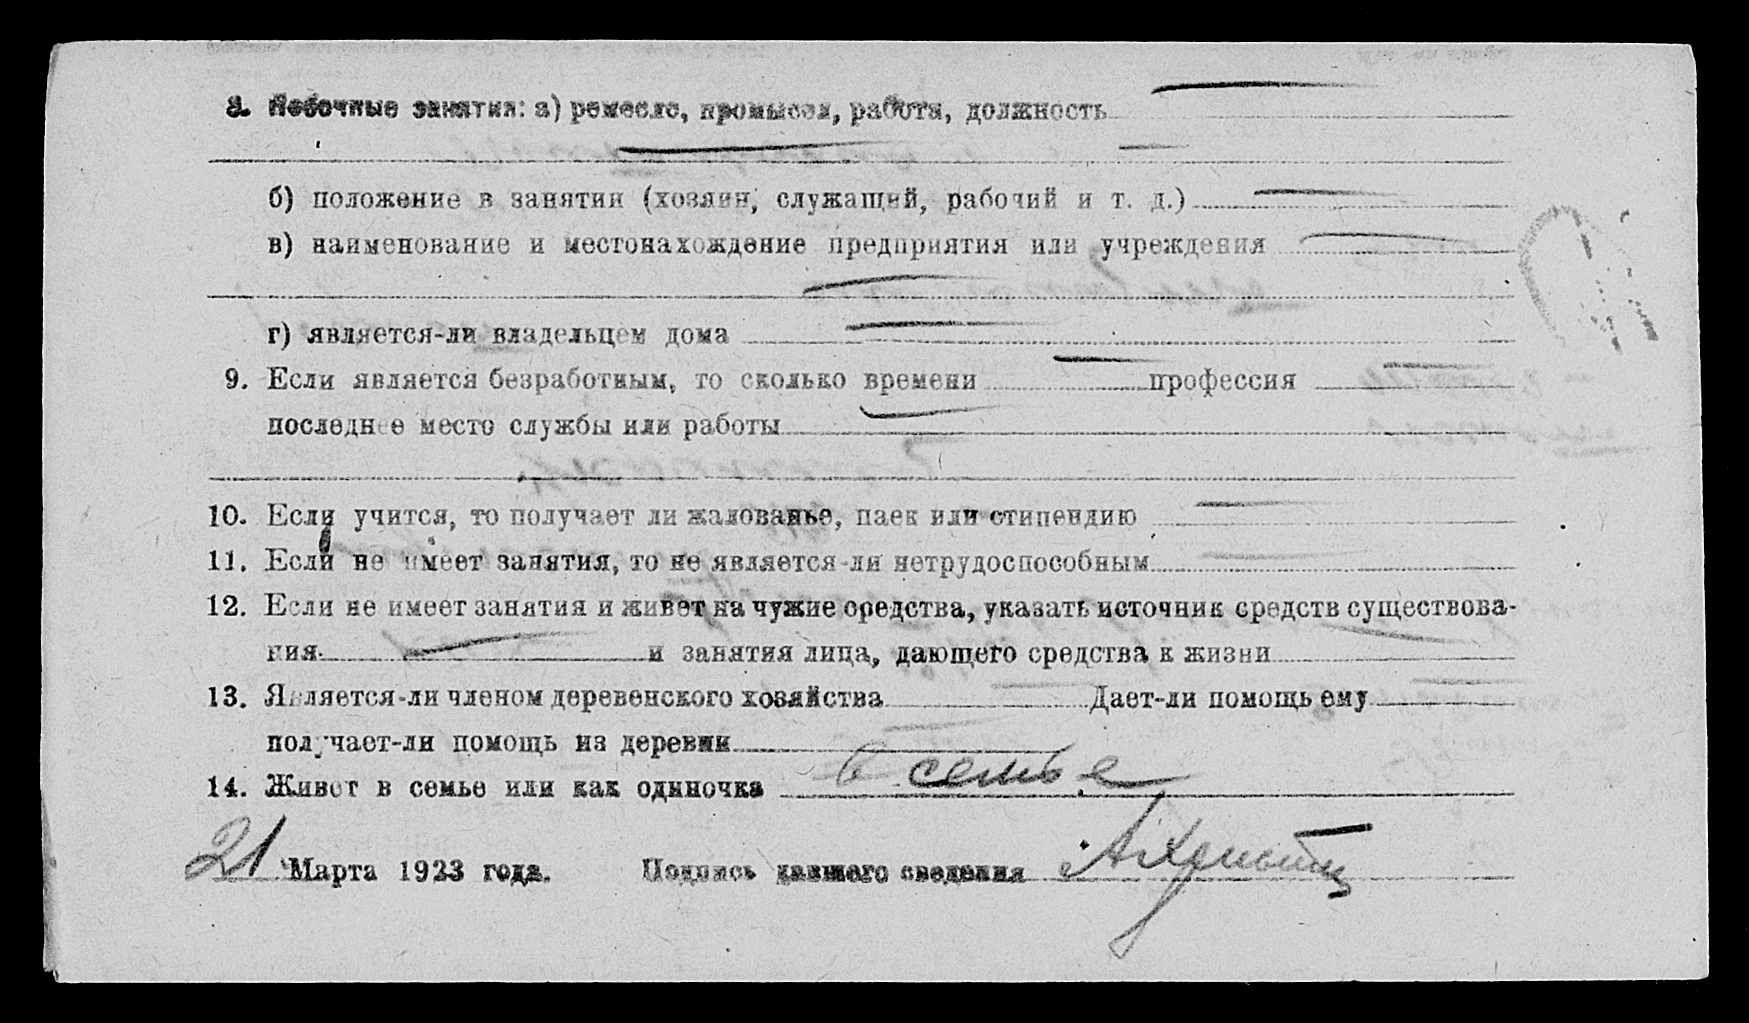 8. Побочные занятия: а) ремесло, промысел, работа, должность
б) положение в занятии (хозяин, служащий, рабочий и т. д.)
в) наименование и местонахождение предприятия или учреждения
г) является-ли владельцем дома
9. Если является безработным, то сколько времени профессия
последнее место службы или работы
10. Если учится, то получает ли жалованье, паек или стипендию
11. Если не имеет занятия, то не является-ли нетрудоспособным
12. Если не имеет занятия и живет на чужие средства, указать источник средств существова-
ния и занятия лица, дающего средства к жизни
13. Является-ли членом деревенского хозяйства Дает-ли помощь ему
получает-ли помощь из деревни
14. Живет в семье или как одиночка в семье
21 Марта 1923 года. Подпись давшего сведения